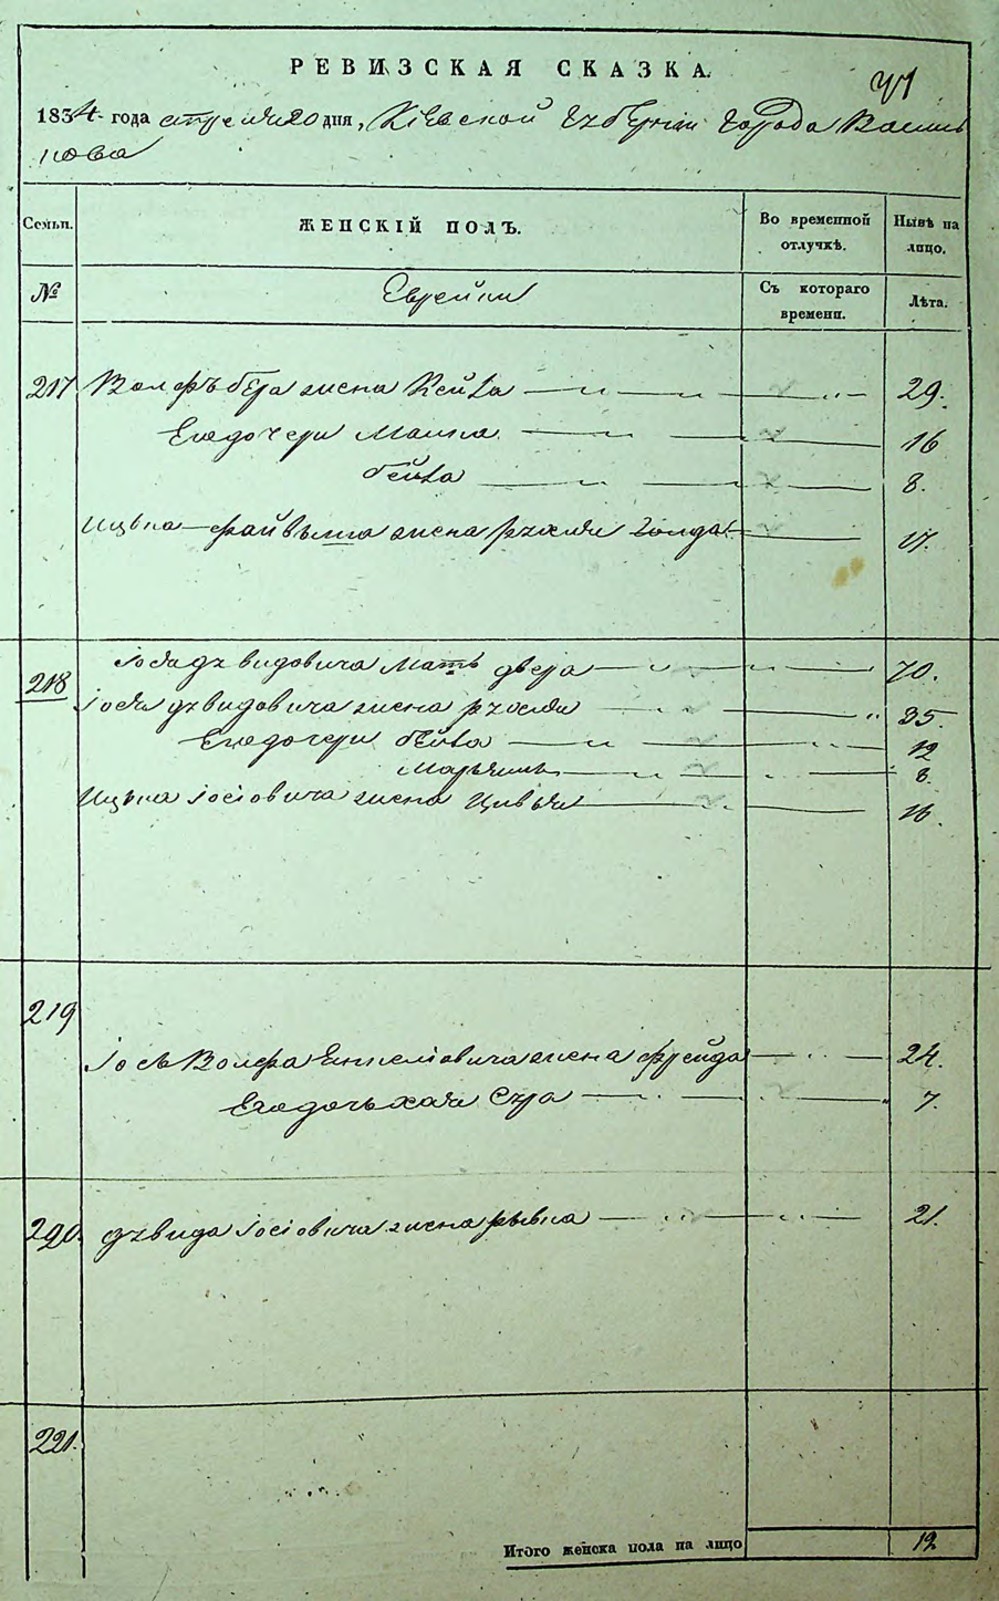 41
РЕВИЗСКАЯ СКАЗКА.
1834 года апреля 20 дня, Кіевской губерніи города Василь
кова
Семьи. ЖЕНСКІЙ ПОЛЪ. Во временной отлучкѣ. Нынѣ на лицо.
№ Еврейки Съ котораго времени. Лѣта.
217 Волфъ бера жена Кейла 29.
Его дочери Малка 16
бейла 8.
Ицька-файвыша жена рухля голда 17.
218 Іося дувидовича мать двера 70.
Іося дувидовича жена рухля 35.
Его дочери бейла 12
Марьямъ 8.
Ицька Іосіовича жена Цивья 16.
219
Іось Волфа Енкеліовича жена фрейда 24.
Его дочь хая Сура 7.
220. дувида Іосіовича жена рывка 21.
221.
Итого женска пола на лицо 12